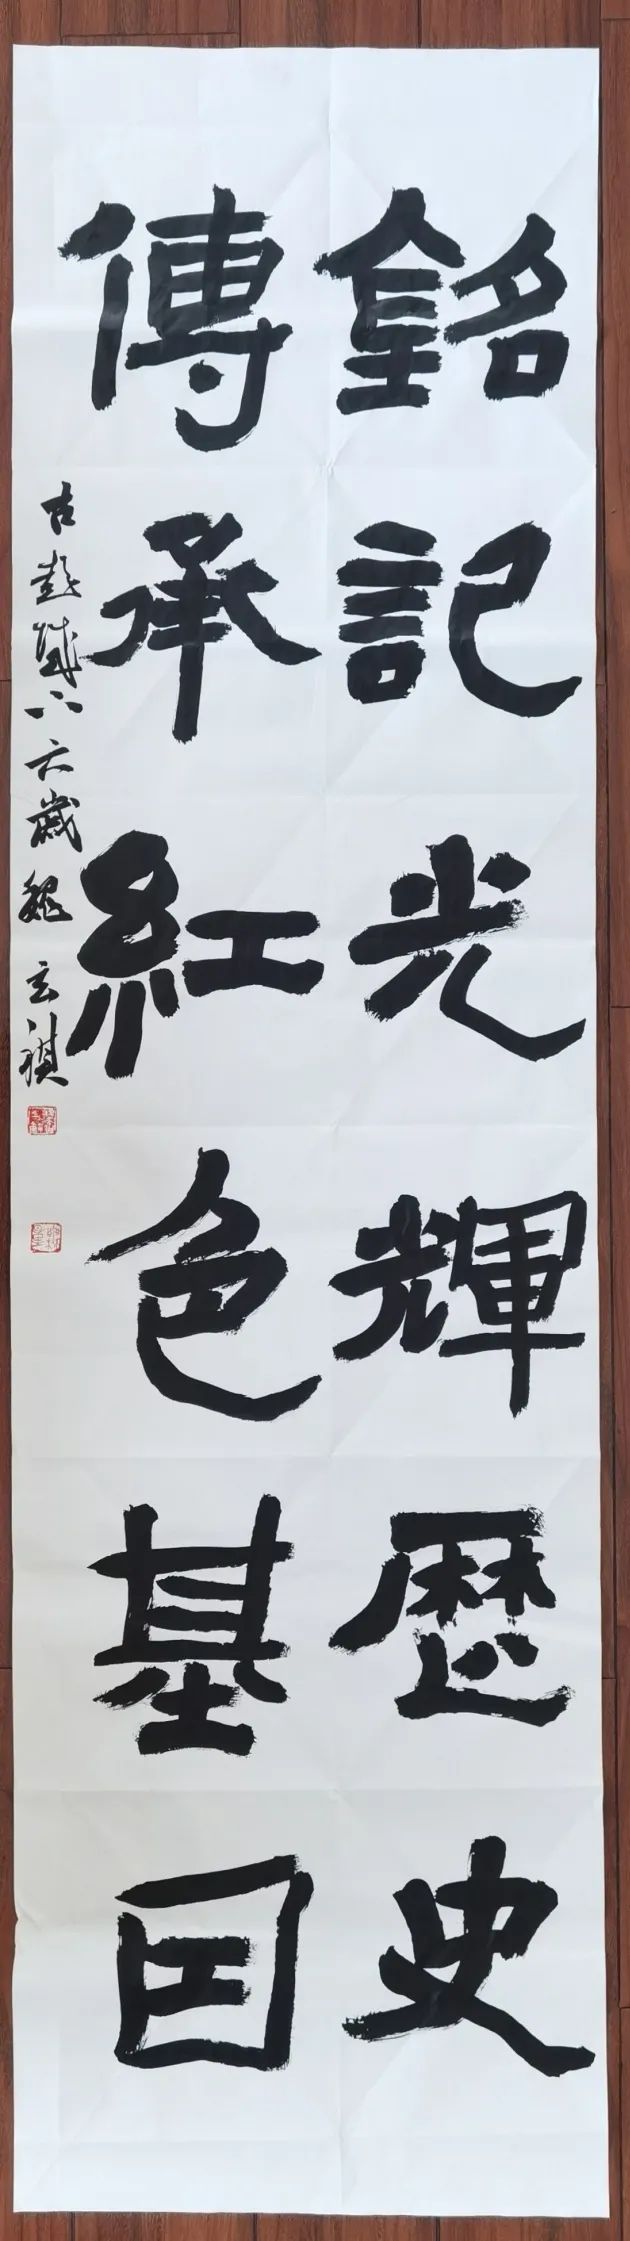 銘記光輝歷史
傳承紅色基因
古越城八六歲魏玄祺